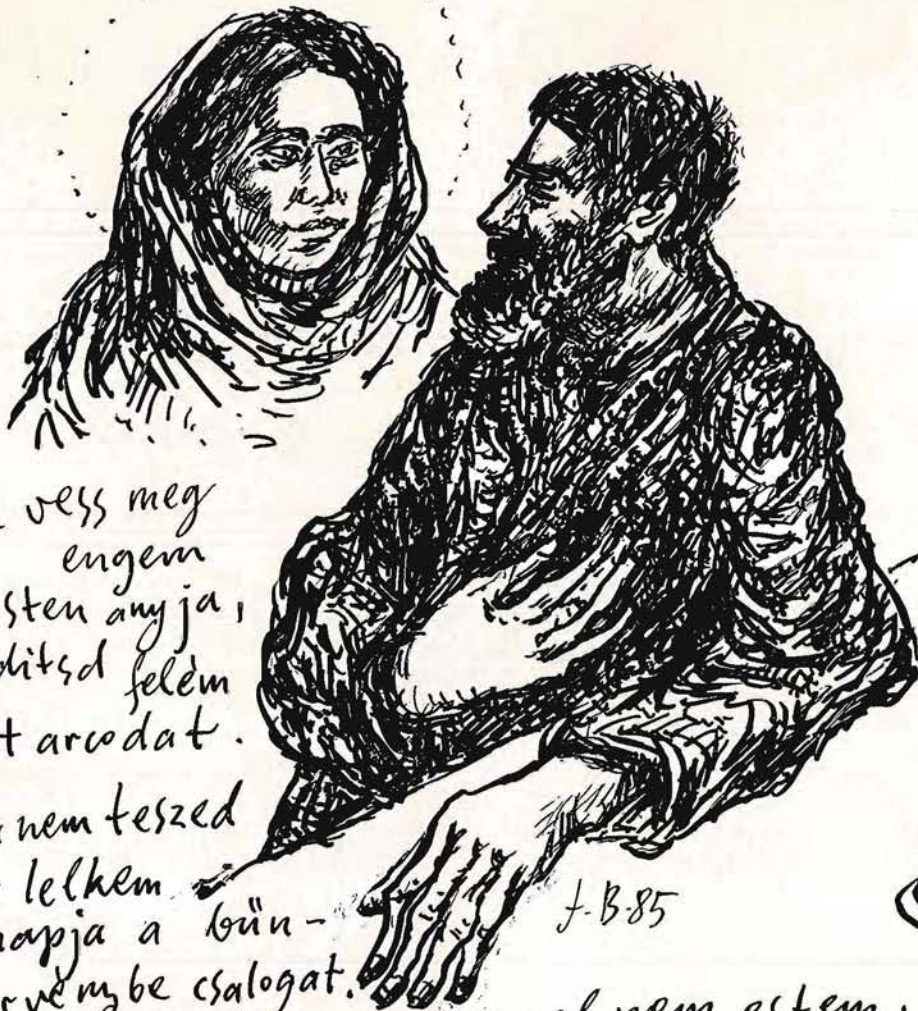 vess meg
engem
sten anyja,
ditsd felém
t arcodat.
nem teszed
lelkem
napja a bün-
be csalogat.
f.B.85
el nem estem